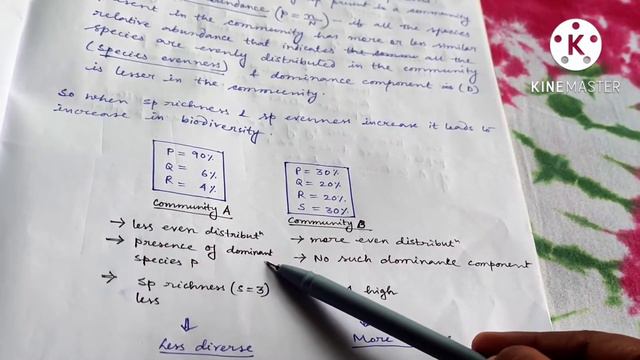 present in the community
relative abundance (P = n/N) – if all the species
present in the community has more or less similar
relative abundance that indicates all the
species are evenly distributed in the community
(species evenness) & dominance component is (D)
is lesser in the community.
So when sp richness & sp evenness increase it leads to
increase in biodiversity.
P = 90%
Q = 6%
R = 4%
Community A
P = 30%
Q = 20%
R = 20%
S = 30%
Community B
→ less even distributⁿ
→ presence of dominant
species P
→ sp richness (s=3)
less
Less diverse
→ more even distributⁿ
→ No such dominante component
high
More
K
KINEMASTER